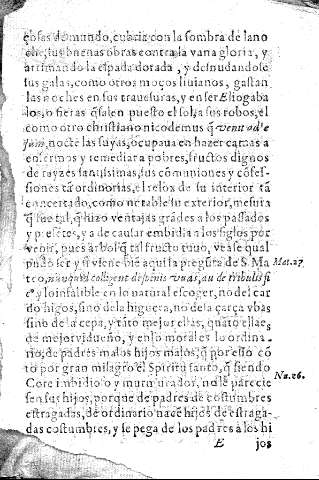 cosas de mundo, cubria con la sombra de la no
che, sus buenas obras contra la vana gloria, y
arrimando la espada dorada, y desnudandose
sus galas, como otros moços liuianos, gastan
las noches en sus trauesuras, y en ser Eliogaba
los, o fieras q̃ salen puesto el sol, a sus robos, el
como otro christiano nicodemus q̃ venit ad Ie
sum, nocte las suyas, ocupaua en hazer camas a
enfermos y remediar a pobres, fructos dignos
de rayzes santissimas, sus comuniones y cõfes-
siones tã ordinarias, el relox de su interior tã
concertado, como notable su exterior, mesura
q̃ fue tal, q̃ hizo ventajas grãdes a los passados
y presẽtes, y a de causar embidia a los siglos por
venir, pues arbol q̃ tal fructo tuuo, vease qual
pudo ser y si viene bie aqui la pregũta de S. Ma
teo, nunquid colligent de spinis vuas, au de tribulis fi
Mat. 27
c° y lo infalible en lo natural escoger, no del car
do higos, sino de la higuera, no de la çarça vbas
sino de la cepa, y tãto mejor ellas, quãto ella es
de mejor vidueño, y en lo morales lo ordina-
rio, de padres malos hijos malos, q̃ por esso cõ
to por gran milagro el Spiritu santo, q̃ siendo
Core imbidioso y murmurador, no le parecie
Nu. 26.
sen sus hijos, porque de padres de costumbres
estragadas, de ordinario nacẽ hijos de estraga-
das costumbres, y se pega de los padres a los hi
E jos